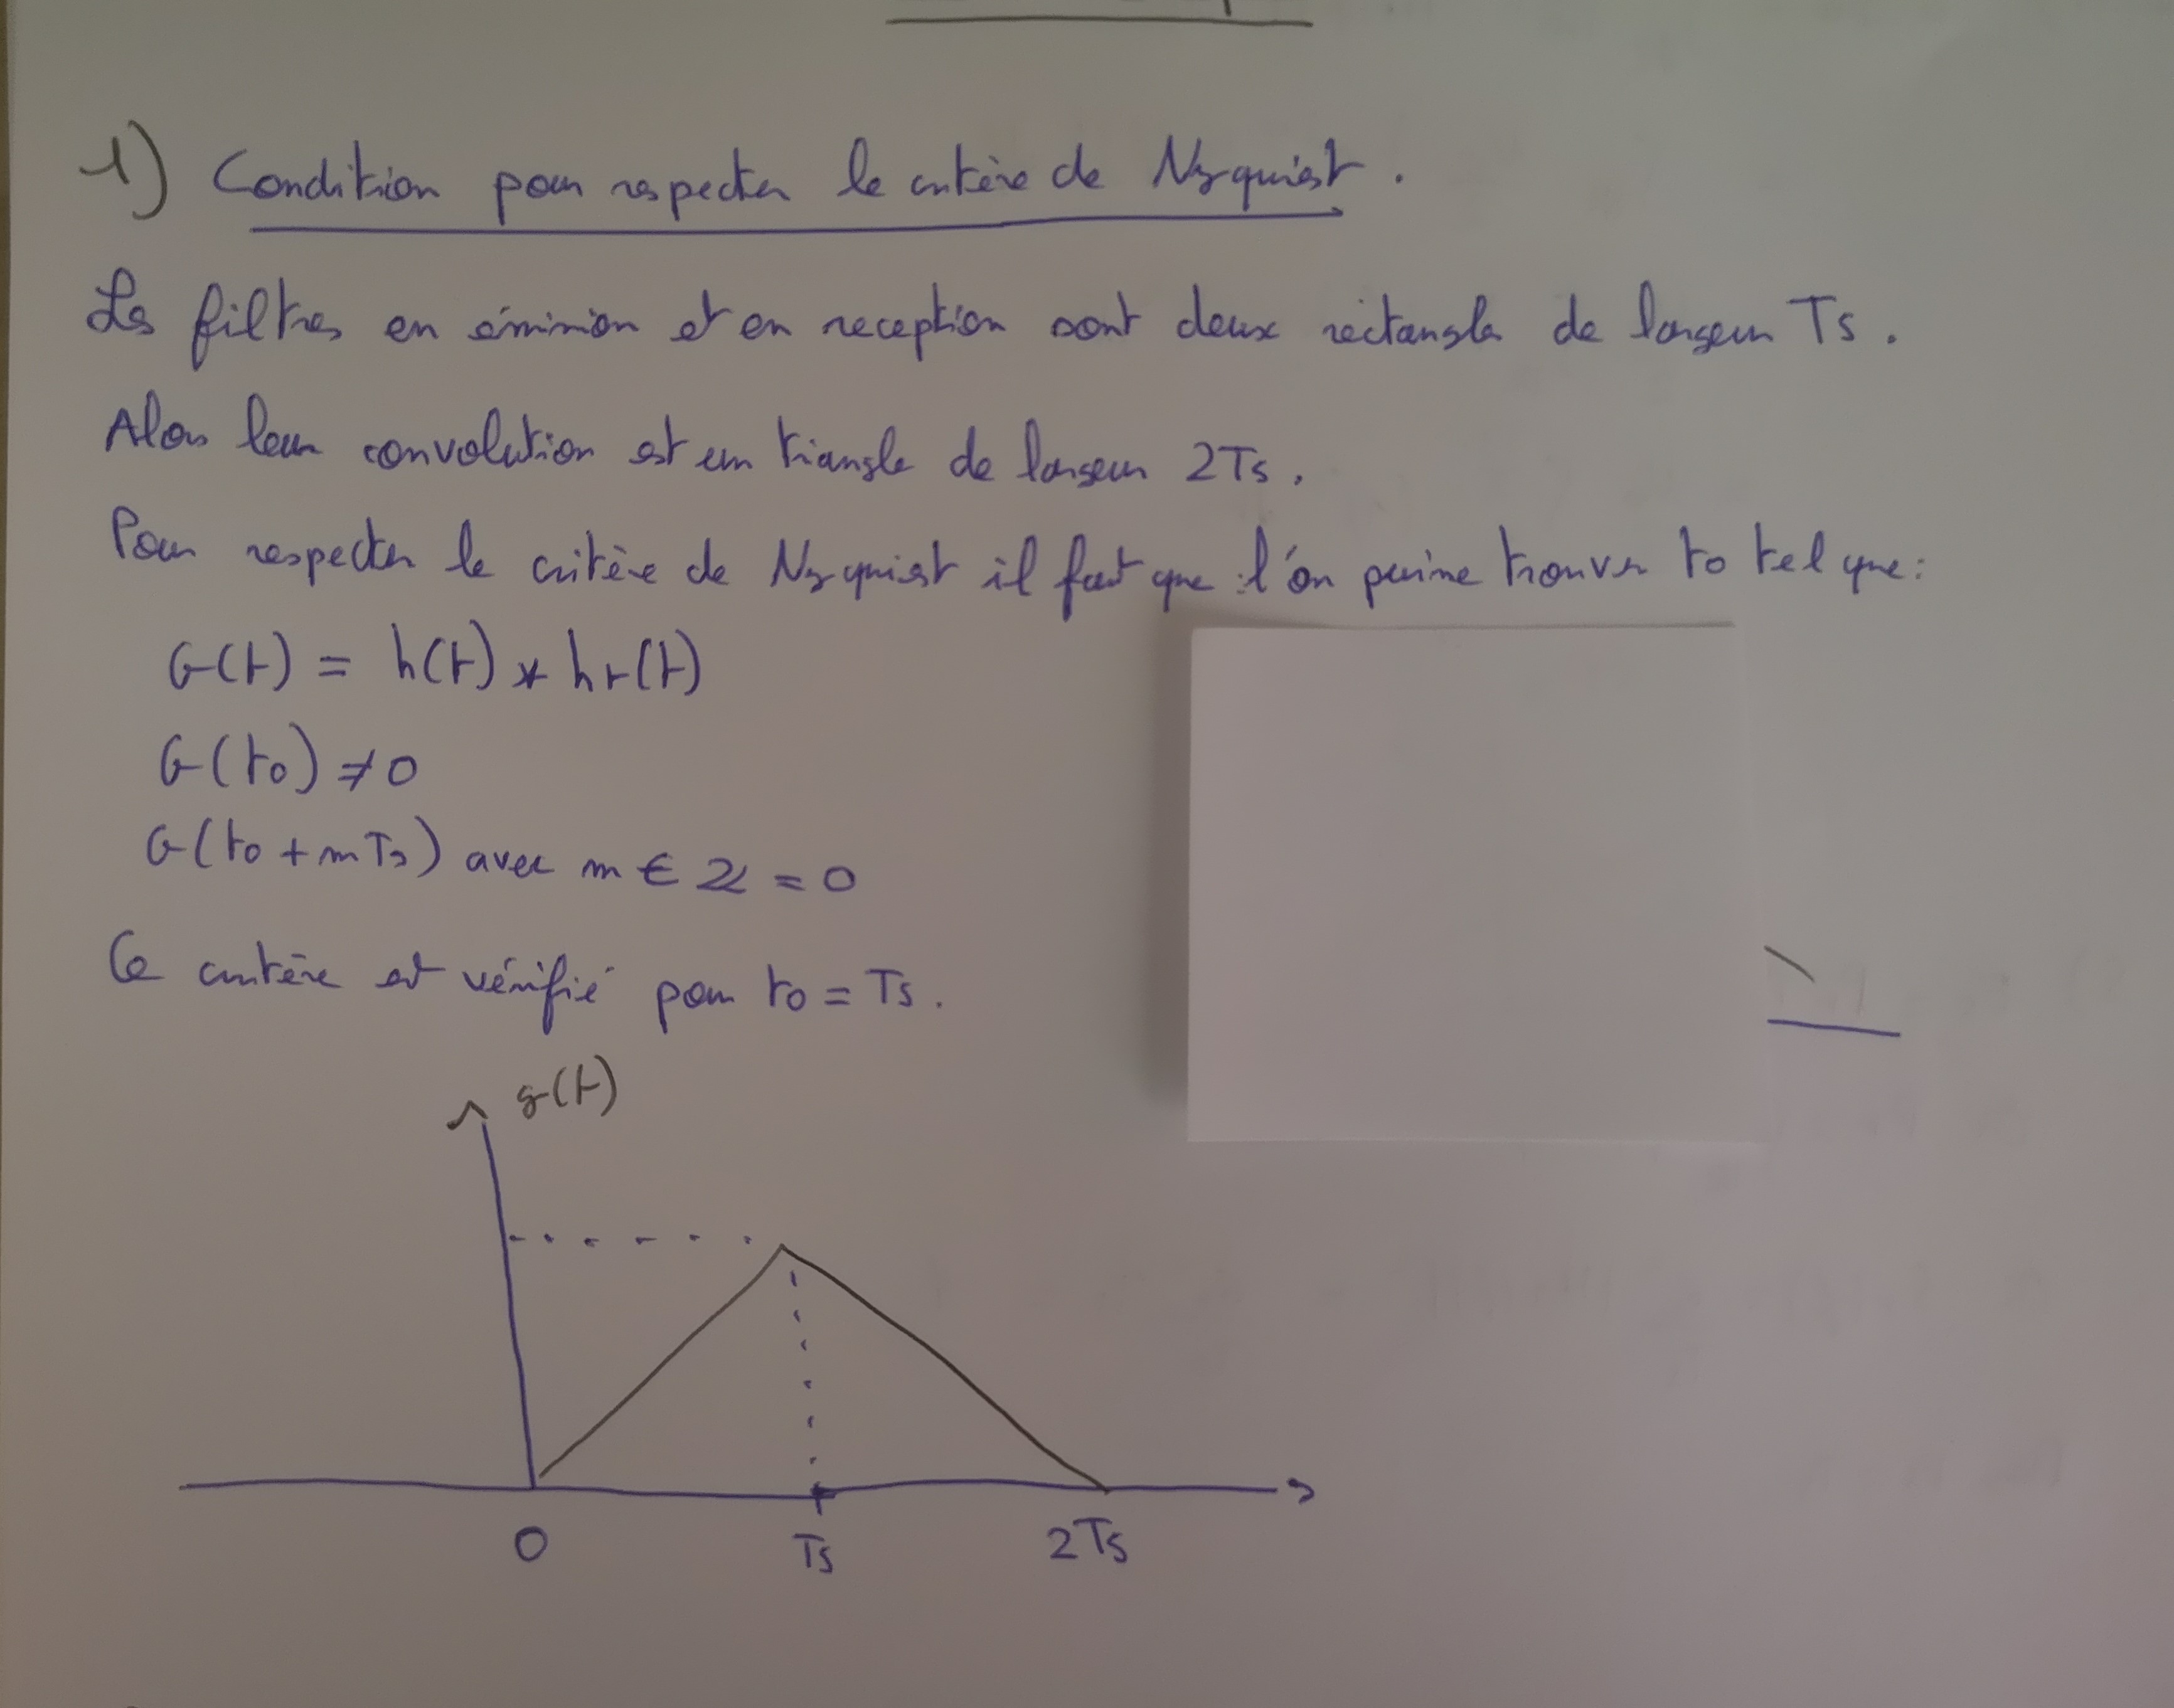 1) Condition pour respecter le critère de Nyquist.
Les filtres en émission et en reception sont deux rectangle de largeur Ts.
Alors leur convolution est un triangle de largeur 2Ts.
Pour respecter le critère de Nyquist il faut que l'on puisse trouver to tel que:
G(t) = h(t) * hr(t)
G(to) ≠ 0
G(to + mTs) avec m ∈ ℤ = 0
Ce critère est vérifié pour to = Ts.
g(t)
0 Ts 2Ts